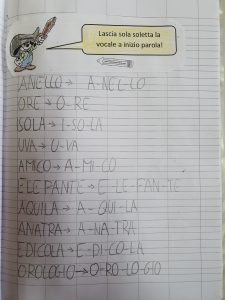 Lascia sola soletta la
vocale a inizio parola!
ANELLO → A-NEL-LO
ORE → O-RE
ISOLA → I-SO-LA
UVA → U-VA
AMICO → A-MI-CO
ELEPANTE → E-LE-FAN-TE
AQUILA → A-QUI-LA
ANATRA → A-NA-TRA
EDICOLA → E-DI-CO-LA
OROLOGIO → O-RO-LO-GIO